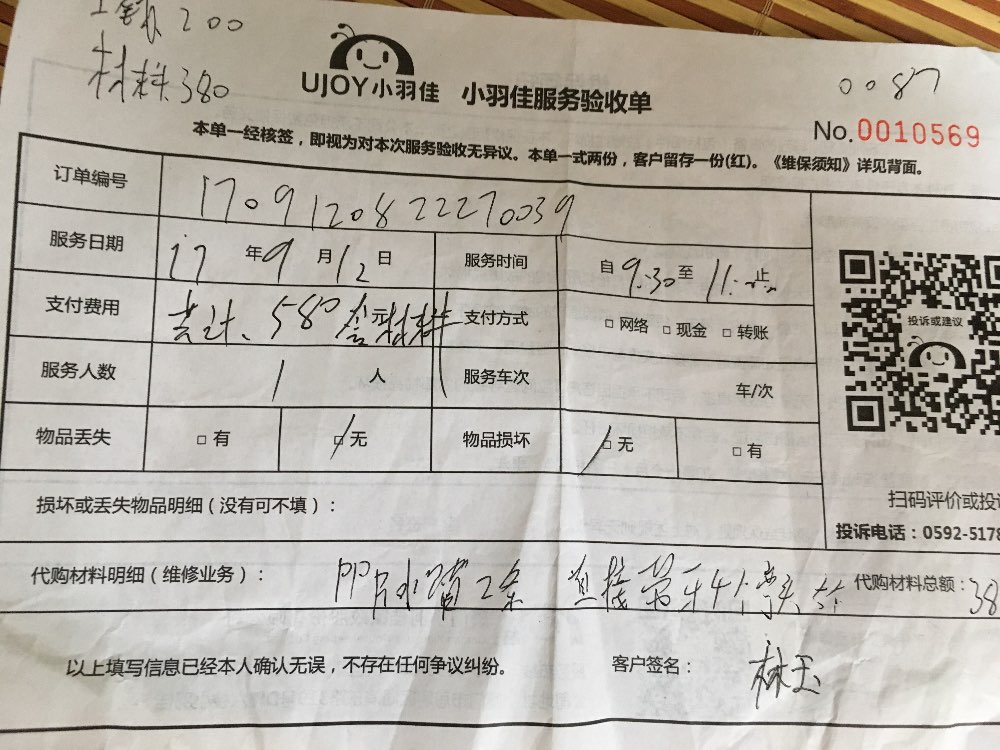 工钱200
材料380
UJOY小羽佳 小羽佳服务验收单
0087
No.0010569
本单一经核签，即视为对本次服务验收无异议。本单一式两份，客户留存一份(红)。《维保须知》详见背面。
订单编号 1709120822270039
服务日期 17年9月12日 服务时间 自9:30至11:止
支付费用 共计、580元含材料 支付方式 □网络 □现金 □转账
服务人数 1人 服务车次 车/次
物品丢失 □有 □无 物品损坏 □无 □有
投诉或建议
扫码评价或投
投诉电话：0592-5178
损坏或丢失物品明细（没有可不填）：
代购材料明细（维修业务）： 水管2条 直接 4个 代购材料总额：38
以上填写信息已经本人确认无误，不存在任何争议纠纷。 客户签名： 林玉